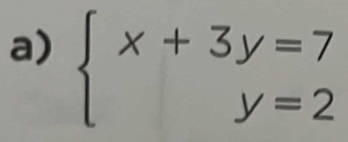 a) { x + 3y = 7
y = 2